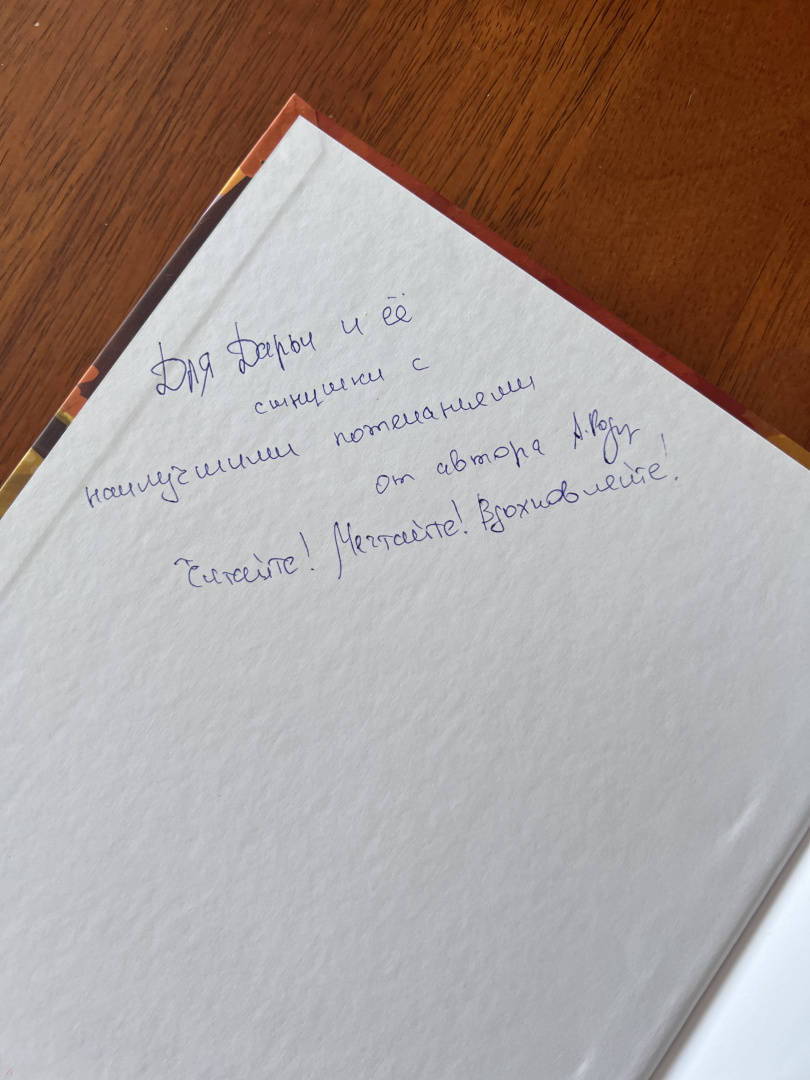 Для Дарьи и её
сынушки с
наилучшими пожеланиями
от автора
Читайте! Мечтайте! Вдохновляйте!